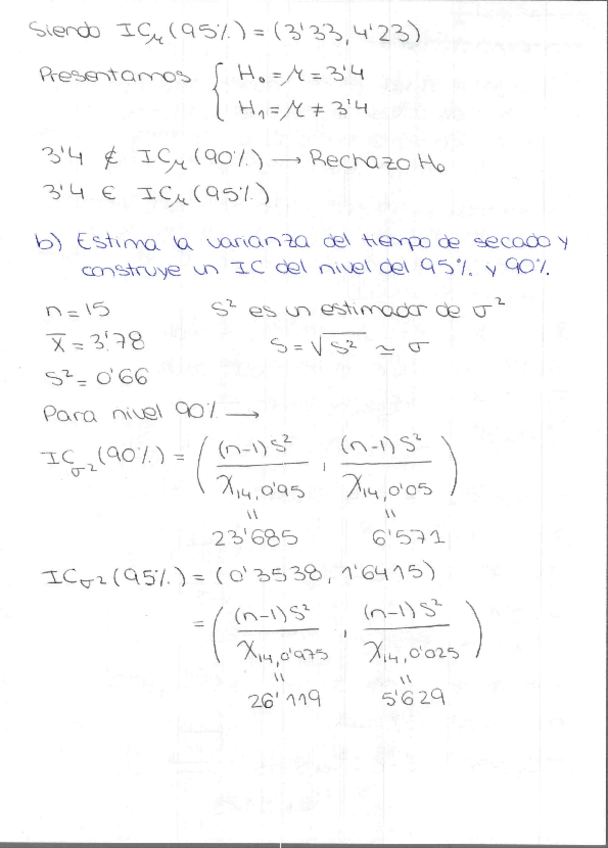 Siendo ICμ(95%) = (3'33, 4'23)
Presentamos { H₀ = μ = 3'4
H₁ = μ ≠ 3'4
3'4 ∉ ICμ(90%) → Rechazo H₀
3'4 ∈ ICμ(95%)
b) Estima la varianza del tiempo de secado y
construye un IC del nivel del 95% y 90%
n = 15 S² es un estimador de σ²
x̄ = 3'78 S = √S² ≃ σ
S² = 0'66
Para nivel 90% →
ICσ²(90%) = ( (n-1)S² / χ₁₄,₀'₉₅ , (n-1)S² / χ₁₄,₀'₀₅ )
= =
23'685 6'571
ICσ²(95%) = (0'3538, 1'6415)
= ( (n-1)S² / χ₁₄,₀'₉₇₅ , (n-1)S² / χ₁₄,₀'₀₂₅ )
= =
26'119 5'629